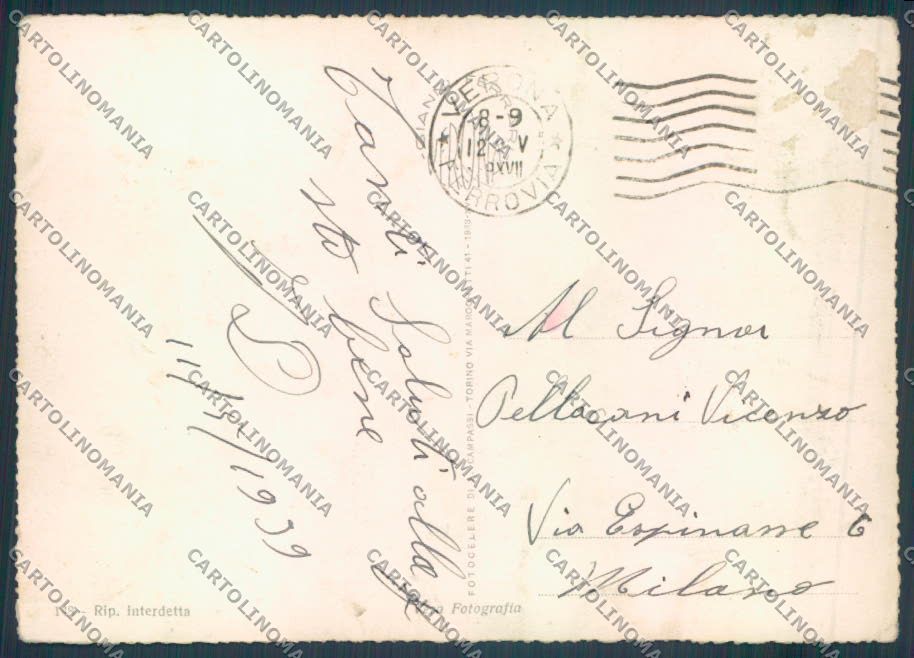 Tanti Saluti alla
sto bene
11/5/1939
VERONA
FERROVIA
8-9
12 V
XVII
Al Signor
Pellacani Vicenzo
Via Espinasse 6
Milano
FOTOCELERE DI CAMPASSI - TORINO VIA MAROCHETTI 41 - 1938
Rip. interdetta
Vera Fotografia
CARTOLINOMANIA